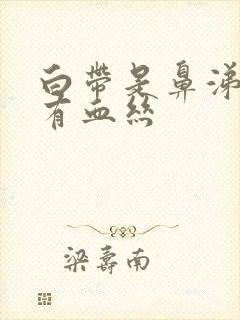 白帶是鼻涕
有血絲
梁壽南